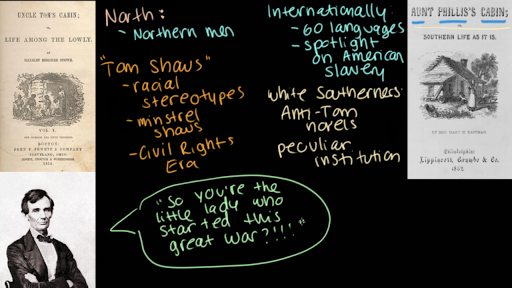 UNCLE TOM'S CABIN;
OR,
LIFE AMONG THE LOWLY.
BY
HARRIET BEECHER STOWE.
VOL. I.
BOSTON:
JOHN P. JEWETT & COMPANY
CLEVELAND, OHIO:
1852.
North:
- Northern men
"Tom Shows"
- racial
stereotypes
- minstrel
shows
- Civil Rights
Era
Internationally:
- 60 languages
- spotlight
on American
slavery
White Southerners:
Anti-Tom
novels
peculiar
institution
"So you're the
little lady who
started this
great war?!!!"
AUNT PHILLIS'S CABIN;
OR,
SOUTHERN LIFE AS IT IS.
BY MRS. MARY H. EASTMAN
Philadelphia:
Lippincott, Grambo & Co.
1852.